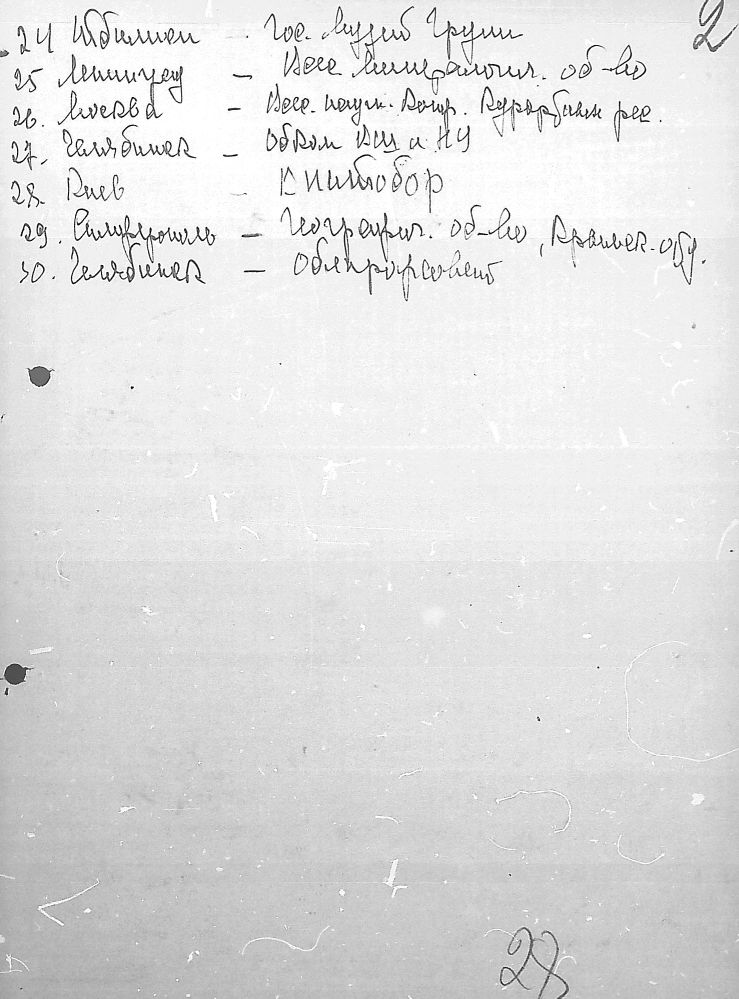 2
24 Тбилиси - Гос. музей Грузии
25 Ленинград - Всес. минералогич. об-во
26. Москва - Всес. научн.
27. Челябинск - Обком ВШ и НУ
28. Киев - Книготорг
29. Симферополь - Географич. об-во, Крымск.
30. Челябинск - Облпрофсовет
28